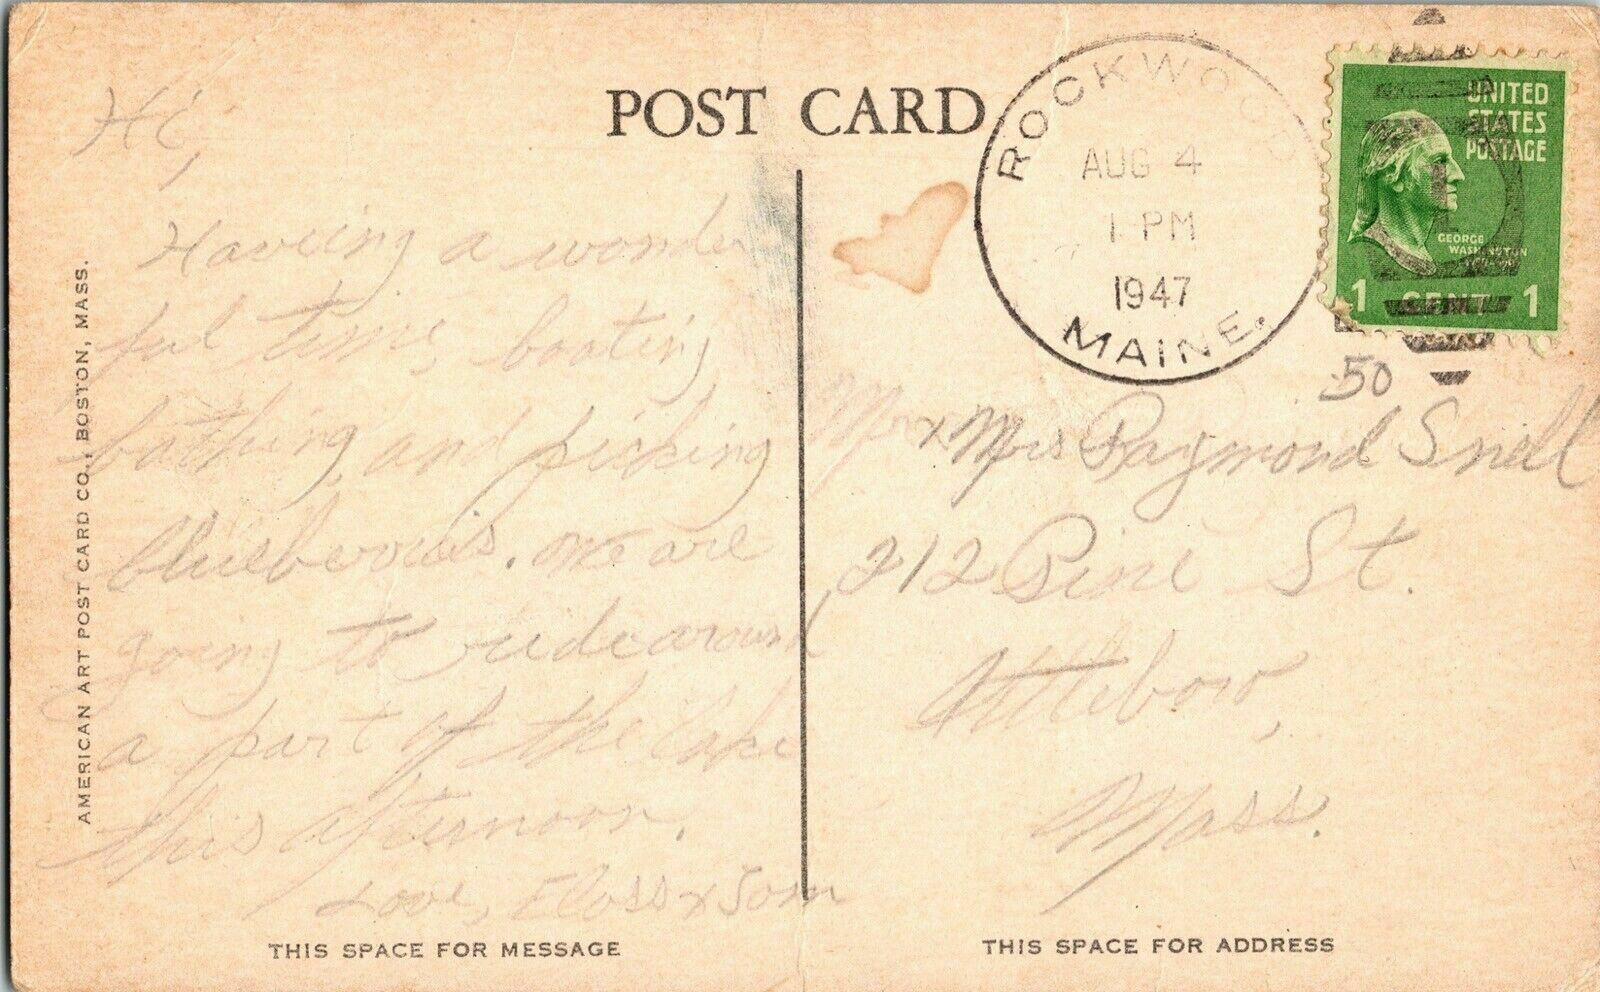 POST CARD
ROCKWOOD
AUG 4
1 PM
1947
MAINE.
UNITED
STATES
POSTAGE
GEORGE
WASHINGTON
1 CENT 1
50
Hi,
Haveing a wonder
ful time boating,
bathing and picking
blueberries. We are
going to ride around
a part of the lake
this afternoon.
Love, Floss & Tom
Mr & Mrs Raymond Snell
212 Pine St.
Attleboro,
Mass.
AMERICAN ART POST CARD CO., BOSTON, MASS.
THIS SPACE FOR MESSAGE
THIS SPACE FOR ADDRESS